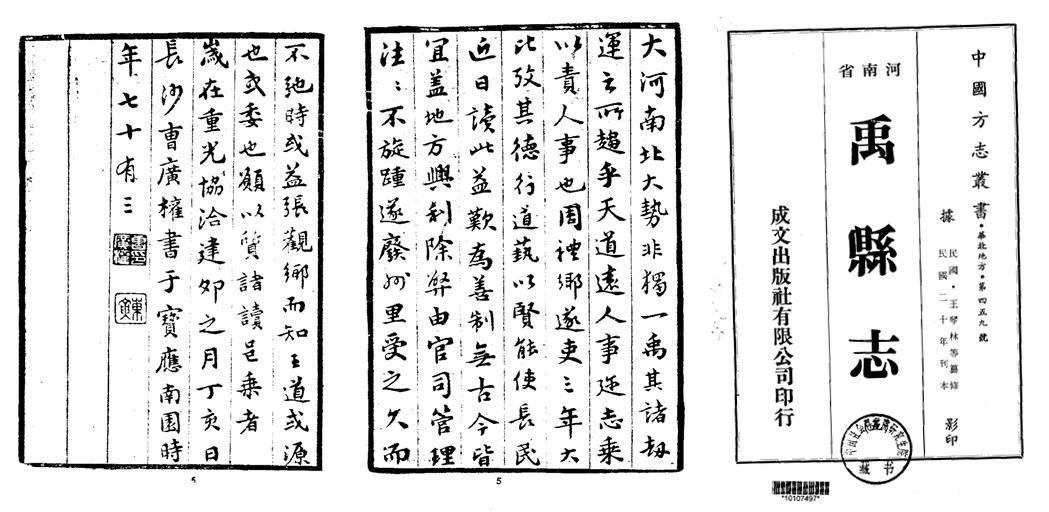 中國方志叢書•華北地方•第四五九號
據
民國•王琴林等纂修
民國二十年刊本
影印
河南省
禹縣志
成文出版社有限公司印行
藏书
*10107497*
大河南北大勢非獨一禹其諸劫
運之所趨乎天道遠人事邇志乘
以責人事也周禮鄉遂吏三年大
比攷其德行道藝以賢能使長民
近日讀此益歎為善制無古今皆
宜蓋地方興利除弊由官司管理
往〻不旋踵遂廢州里受之久而
5
不弛時或益張觀鄉而知王道或源
也或委也願以質諸讀邑乘者
歲在重光協洽建卯之月丁亥日
長沙曹廣權書于寶應南園時
年七十有三
5